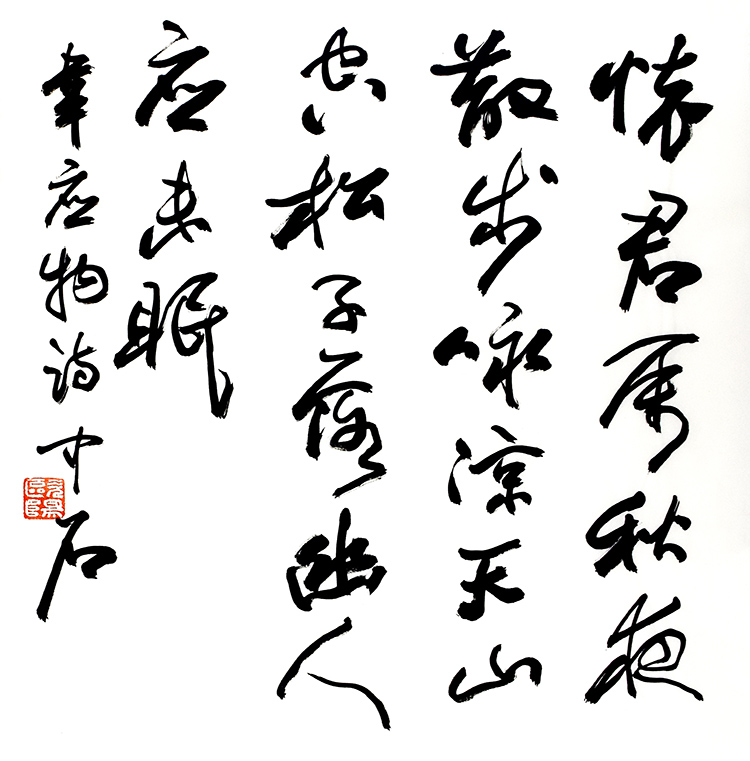 懷君属秋夜
散步咏涼天山
空松子落幽人
应未眠
韋应物诗 中石